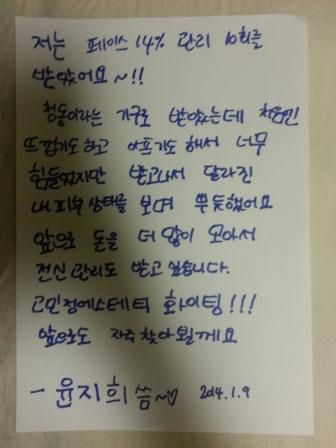 저는 페이스 14% 관리 10회를
받았어요~!!
청동이라는 기구로 받았는데 처음엔
뜨겁기도하고 아프기도 해서 너무
힘들었지만 받고나서 달라진
내 피부 상태를 보며 뿌듯했어요
앞으로 돈을 더 많이 모아서
전신 관리도 받고 싶습니다.
고민정에스테틱 화이팅!!!
앞으로도 자주 찾아뵐께요
- 윤지희 씀~♡ 2014.1.9